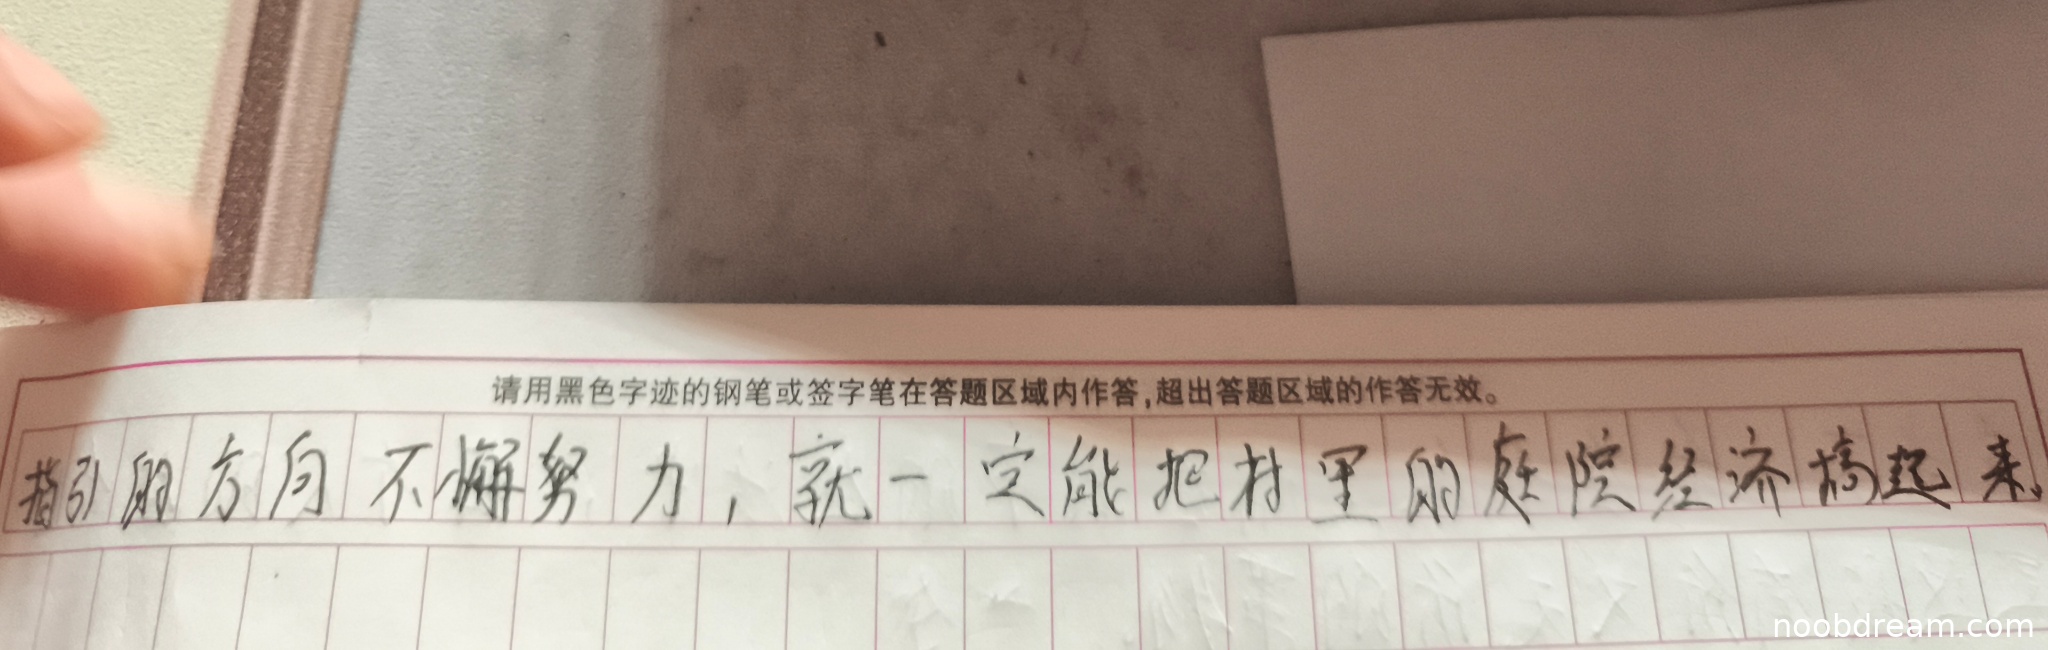 请用黑色字迹的钢笔或签字笔在答题区域内作答,超出答题区域的作答无效。
指引的方向不懈努力,就一定能把村里的庭院经济搞起来。
noobdream.com